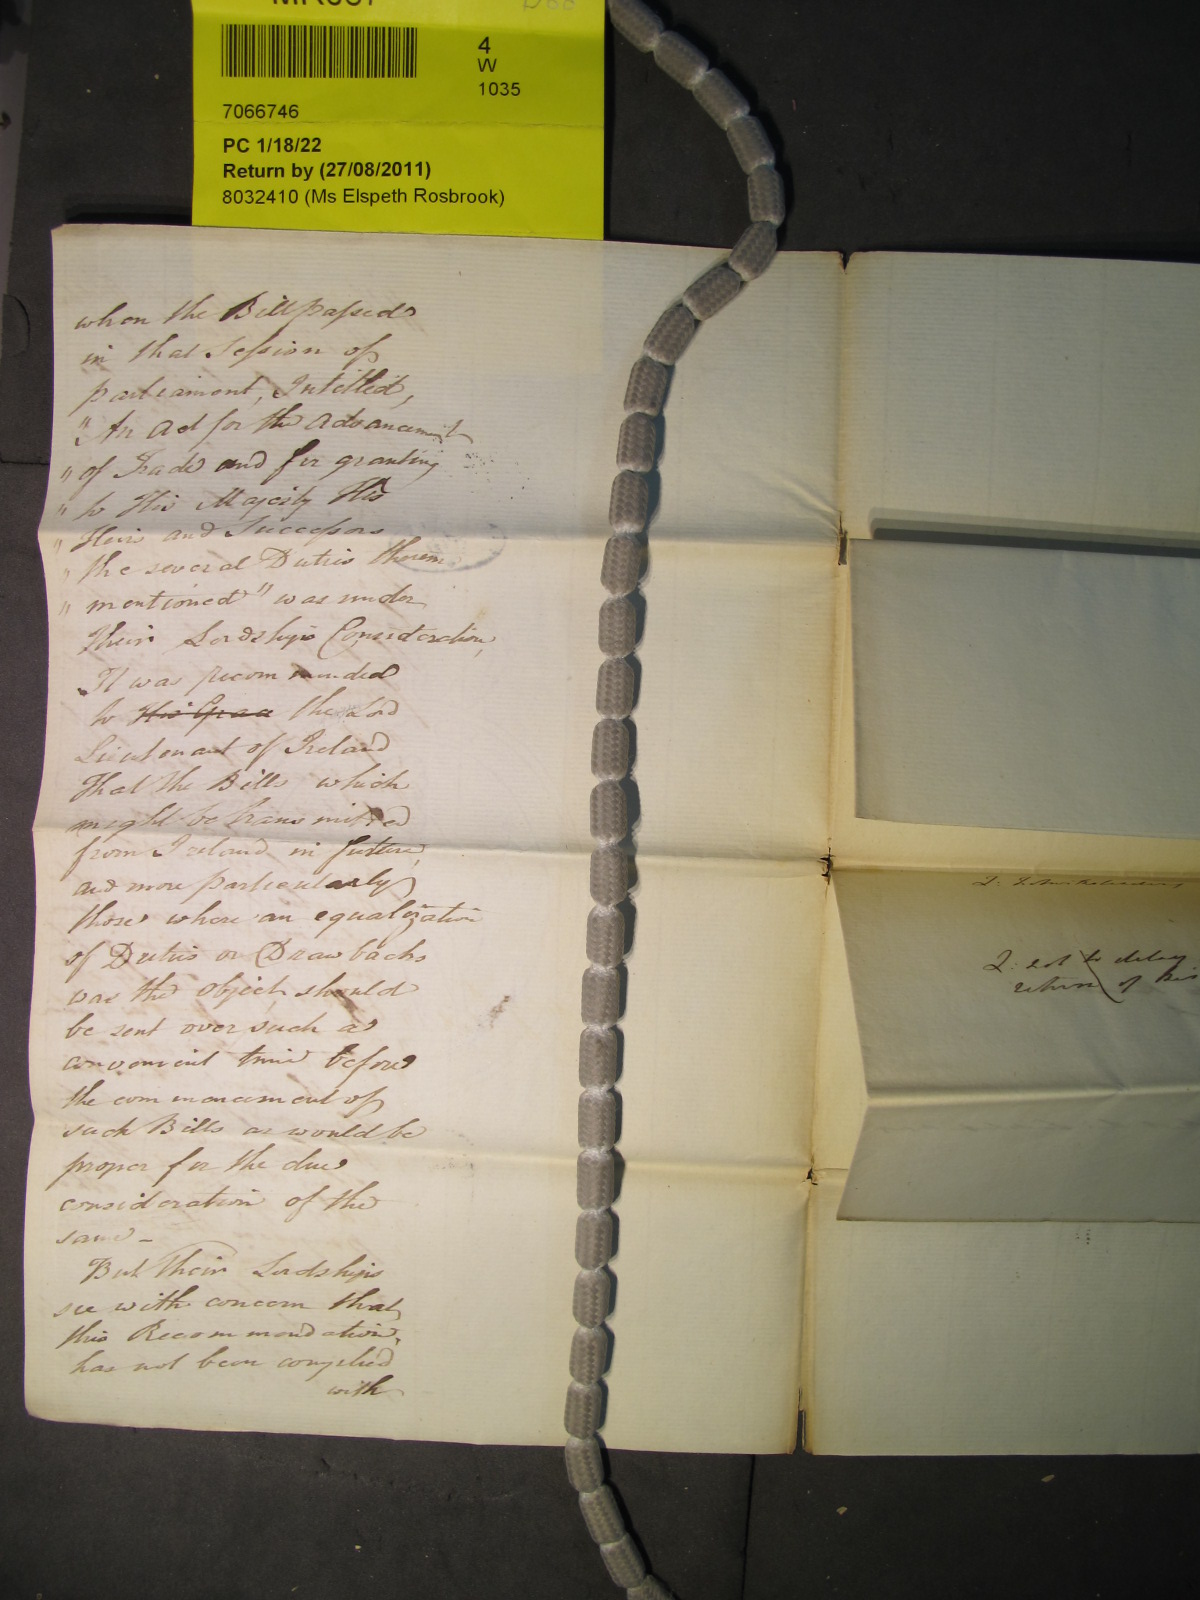 4
W
1035
7066746
PC 1/18/22
Return by (27/08/2011)
8032410 (Ms Elspeth Rosbrook)
when the Bill passed
in that Session of
parliament, Intitled,
"An Act for the Advancement
" of Trade and for granting
" to His Majesty His
" Heirs and Successors
" the several Duties therein
" mentioned" was under
Their Lordships Consideration,
It was recommended
to His Grace the Lord
Lieutenant of Ireland
That the Bills which
might be transmitted
from Ireland in future,
and more particularly
those where an equalization
of Duties or Drawbacks
was the object should
be sent over such a
convenient time before
the commencement of
such Bills as would be
proper for the due
consideration of the
same -
But Their Lordships
see with concern that
this Recommendation,
has not been complied
with
2: not to delay
return of his